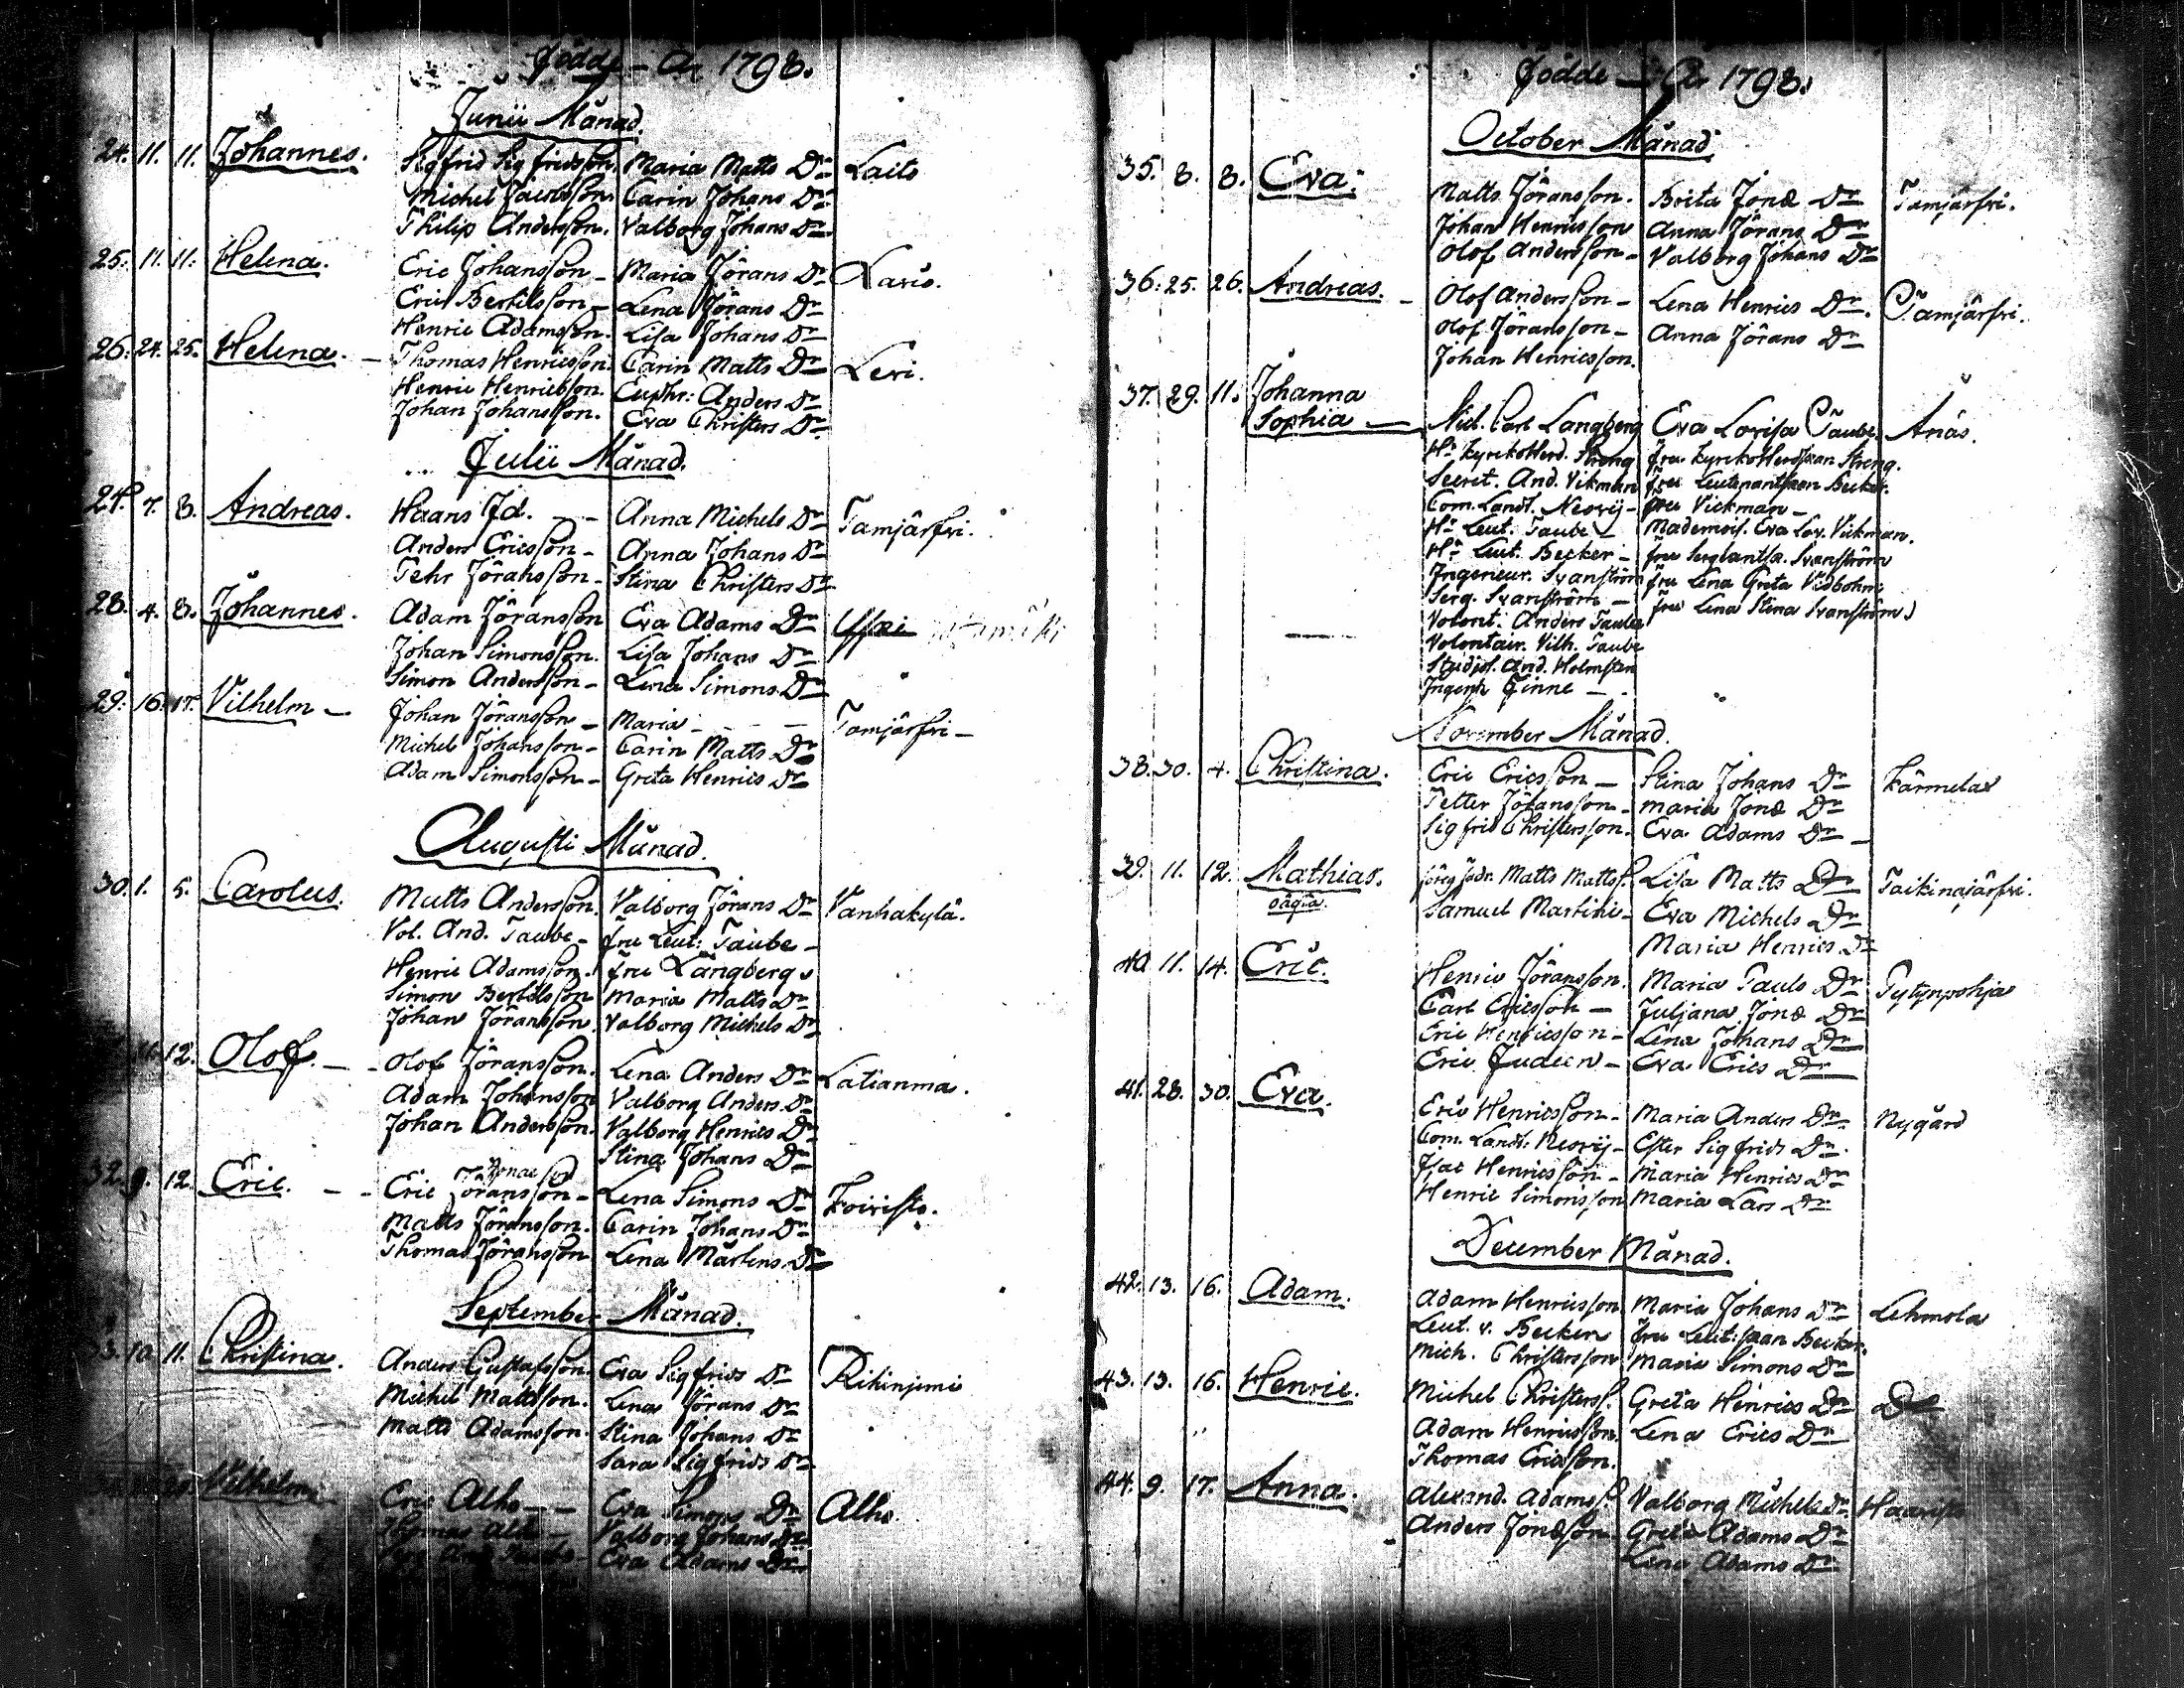 Födde - År 1798.
Junii Månad.
24. 11. 11. Johannes. Sigfrid Sigfridsson. Maria Matts Dr Laito
Michel Jacobsson. Carin Johans Dr
Philip Andersson. Valborg Johans Dr
25. 11. 11. Helena. Eric Johansson - Maria Jörans Dr Lavis.
Eric Bertilsson - Lena Jörans Dr
Henric Adamsson. Lisa Johans Dr
26. 24. 25. Helena. - Thomas Henricsson. Carin Matts Dr Levi.
Henric Henricsson. Euphr: Anders Dr
Johan Johansson. Eva Christers Dr
Julii Månad.
7. 8. Andreas. Haans Anna Michels Dr Tamjärfvi.
Anders Ericsson - Anna Johans Dr
Pehr Jöransson - Stina Christers Dr
28. 4. 8. Johannes. Adam Jöransson Eva Adams Dr
Johan Simonsson. Lisa Johans Dr
Simon Andersson - Lena Simons Dr
29. 16. 17. Vilhelm - Johan Jöransson - Maria - - Tamjärfvi -
Michel Johansson - Carin Matts Dr
Adam Simonsson - Greta Henrics Dr
Augusti Månad.
30. 1. 5. Carolus. Matts Andersson. Valborg Jörans Dr Vanhakylä.
Vol. And. Taube - fru Leut: Taube -
Henric Adamsson. fru Långberg
Simon Bertilsson Maria Matts Dr
Johan Jöransson. Valborg Michels Dr
12. Olof. - - Olof Jöransson. Lena Anders Dr Latianma.
Adam Johansson Valborg Anders Dr
Johan Andersson. Valborg Henrics Dr
Stina Johans Dr
Jonae
32. 9. 12. Eric. - - Eric Jöransson - Lena Simons Dr Koivisto.
Matts Jöransson. Carin Johans Dr
Thomas Jöransson Lena Mårtens Dr
September Månad.
33. 10. 11. Christina. Anders Gustafsson. Eva Sigfrids Dr Rikinjemi
Michel Mattsson. Lena Jörans Dr
Matts Adamsson. Stina Johans Dr
Sara Sigfrids Dr
Vilhelm. Eric Alho - - Eva Simons Dr Alho.
Thomas Valborg Johans Dr
Eva Adams Dr
Födde - År 1798.
October Månad.
35. 8. 8. Eva. Matts Jöransson. Brita Jonæ Dr Tamjärfvi.
Johan Henricsson Anna Jörans Dr
Olof Andersson - Valborg Johans Dr
36. 25. 26. Andreas. - Olof Andersson - Lena Henrics Dr. Tamjärfvi.
Olof Jöransson - Anna Jörans Dr
Johan Henricsson.
37. 29. 11. Johanna
Sophia - Carl Langberg Eva Lovisa Taube. Anäs.
Hr Kyrkoherd. Streng fru Kyrkoherdskan Streng.
Secret. And. Vikman fru Leutenantskan Becker.
Com. Landt. Neovij - fru Vickman -
Hr Leut. Taube - Mademois. Eva Lov. Vikman.
Hr Leut. Becker - fru Sergeantsk. Svanström
Ingenieur. Svanström fru Lena Greta Vidbohm
Serg. Svanström - fru Lena Stina Svanström
Volont. Anders Taube
Volontair. Vilh. Taube
Studios. And. Holmsten
Ingenr Finne -
November Månad.
38. 30. 4. Christina. Eric Ericsson - Stina Johans Dr Kärmelax
Petter Johansson - Maria Jonæ Dr
Sigfrid Christersson. Eva Adams Dr -
39. 11. 12. Mathias. Matts Mattss. Lisa Matts Dr Taikinajärfvi.
oägta. Samuel Martini - Eva Michels Dr
Maria Henrics Dr
40. 11. 14. Eric. Henric Jöransson. Maria Pauls Dr Pytynpohja
Carl Ericsson - Juljana Jonæ Dr
Eric Henricsson - Lena Johans Dr
Eric Judeen - Eva Erics Dr
41. 28. 30. Eva. Eric Henricsson - Maria Anders Dr. Nygård
Com. Landt: Neovij - Ester Sigfrids Dr.
Isac Henricsson - Maria Henrics Dr
Henric Simonsson Maria Lars Dr
December Månad.
42. 13. 16. Adam. Adam Henricsson Maria Johans Dr Lehmola
Leut. v. Becker fru Leut:skan Becker.
Mich. Christersson Maria Simons Dr
43. 13. 16. Henric. Michel Christerss. Greta Henrics Dr Do
Adam Henricsson. Lena Erics Dr
Thomas Ericsson.
44. 9. 17. Anna. Alexand. Adamss. Valborg Michels Dr
Anders Jonæson - Greta Adams Dr
Lena Adams Dr